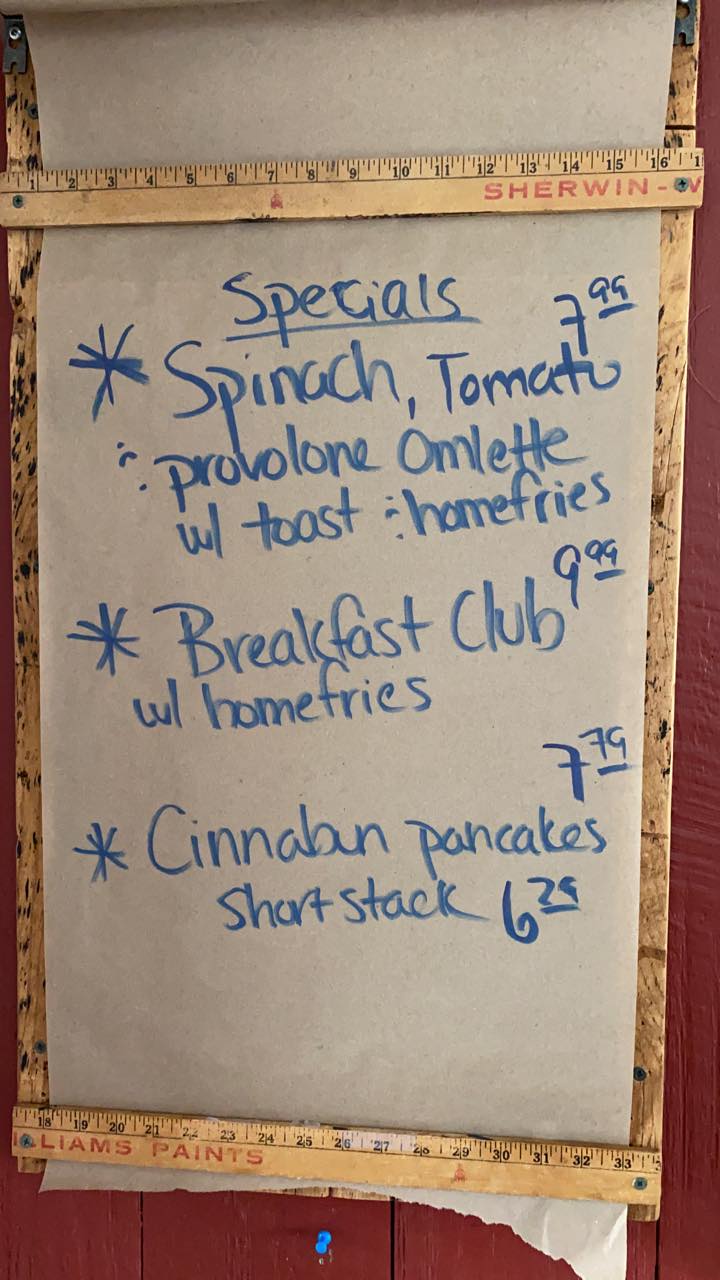 1 2 3 4 5 6 7 8 9 10 11 12 13 14 15 16
SHERWIN-W
Specials
7 99
* Spinach, Tomato
& provolone Omlette
w/ toast & homefries
9 99
* Breakfast Club
w/ homefries
7 79
* Cinnabun pancakes
short stack 6 29
18 19 20 21 22 23 24 25 26 27 28 29 30 31 32 33
LLIAMS PAINTS